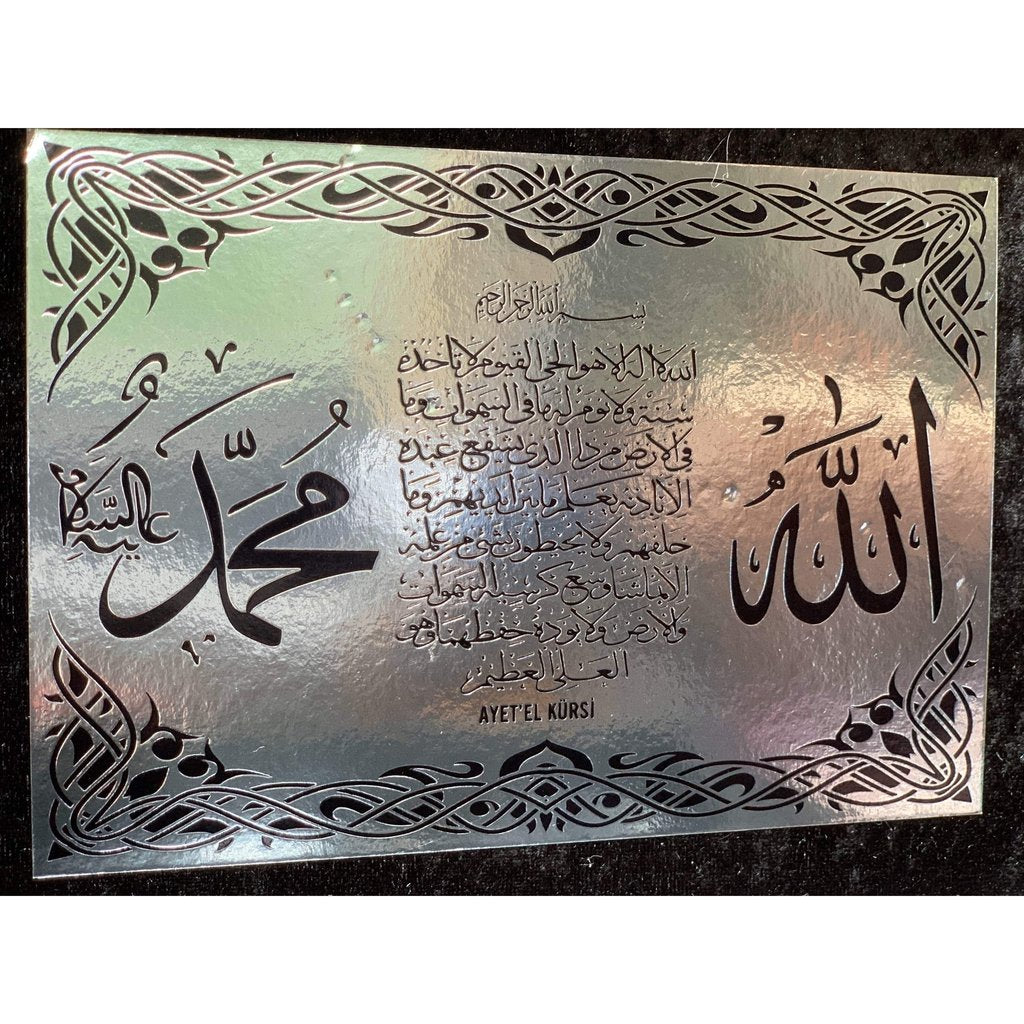 الله
بسم الله الرحمن الرحيم
الله لا اله الا هو الحي القيوم لا تأخذه
سنة ولا نوم له ما في السموات وما
في الارض من ذا الذي يشفع عنده
الا باذنه يعلم ما بين ايديهم وما
خلفهم ولا يحيطون بشيء من علمه
الا بما شاء وسع كرسيه السموات
والارض ولا يوده حفظهما وهو
العلي العظيم
AYET'EL KÜRSİ
محمد
عليه السلام